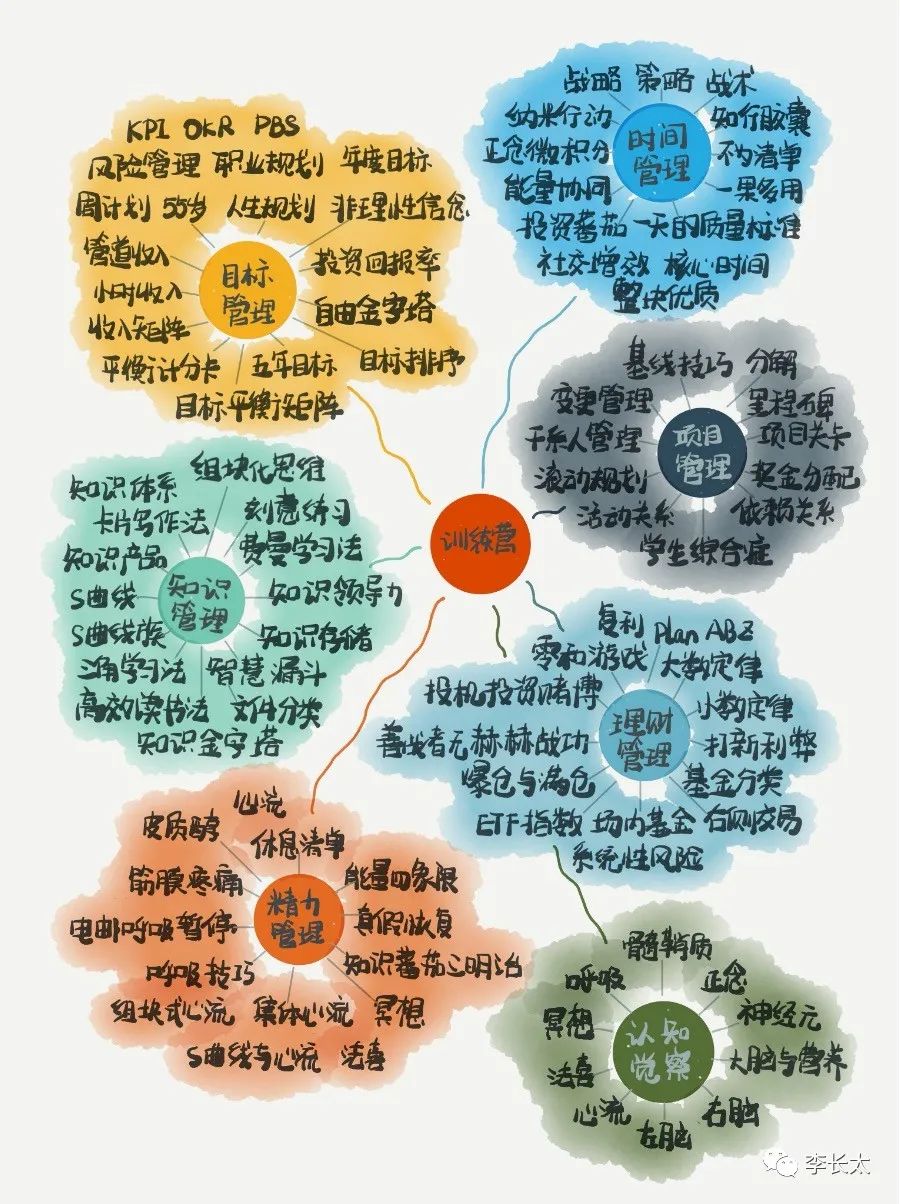 训练营
目标
管理
KPI OKR PBS
风险管理 职业规划 年度目标
周计划 55岁 人生规划 非理性信念
管道收入 投资回报率
小时收入 自由金字塔
收入矩阵
平衡计分卡 五年目标 目标排序
目标平衡矩阵
时间
管理
战略 策略 战术
纳米行动 知行胶囊
正念微积分 不为清单
能量协同 一果多用
投资番茄 一天的质量标准
社交增效 核心时间
整块优质
项目
管理
基线技巧 分解
变更管理 里程碑
干系人管理 项目关卡
滚动规划 奖金分配
活动关系 依赖关系
学生综合症
知识
管理
知识体系 组块化思维
卡片写作法 刻意练习
知识产品 费曼学习法
S曲线 知识领导力
S曲线族 知识存储
三角学习法 智慧漏斗
高效读书法 文件分类
知识金字塔
理财
管理
复利 Plan ABZ
零和游戏 大数定律
投机投资赌博 小数定律
善战者无赫赫战功 打新利弊
爆仓与满仓 基金分类
ETF指数 场内基金 右侧交易
系统性风险
精力
管理
皮质醇 心流
休息清单
筋膜疼痛 能量四象限
电邮呼吸暂停 真假恢复
呼吸技巧 知识番茄三明治
组块式心流 集体心流 冥想
S曲线与心流 法喜
认知
觉察
髓鞘质
呼吸 正念
冥想 神经元
法喜 大脑与营养
心流 左脑 右脑
李长太